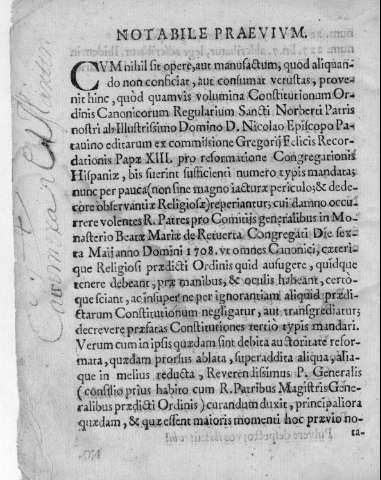 NOTABILE PRAEVIVM.
CVM nihil sit opere, aut manufactum, quod aliquan-
do non conficiat, aut consumat vetustas, prove-
nit hinc, quòd quamvis volumina Constitutionum Or-
dinis Canonicorum Regularium Sancti Norberti Patris
nostri ab Illustrissimo Domino D. Nicolao Episcopo Pa-
tauino editarum ex commissione Gregorij Felicis Recor-
dationis Papæ XIII. pro reformatione Congregationis
Hispaniæ, bis fuerint sufficienti numero typis mandata;
nunc per pauca (non sine magno iacturæ periculo; & dede-
core observantiæ Religiosæ) reperiantur; cui damno occu-
rrere volentes R. Patres pro Comitijs generalibus in Mo-
nasterio Beatæ Mariæ de Retuerta Congregati Die sex-
ta Maij anno Domini 1708. vt omnes Canonici, cæteri-
que Religiosi prædicti Ordinis quid aufugere, quidque
tenere debeant, præ manibus, & oculis habeant, certò-
que sciant, ac insuper ne per ignorantiam aliquid prædi-
ctarum Constitutionum negligatur, aut transgrediatur;
decrevere præfatas Constitutiones tertiò typis mandari.
Verum cum in ipsis quædam sint debita auctoritate refor-
mata, quædam prorsus ablata, superaddita aliqua, alia-
que in melius reducta, Reverendissimus P. Generalis
(consilio prius habito cum R. Patribus Magistris Gene-
ralibus prædicti Ordinis) curandum duxit, principaliora
quædam, & quæ essent maioris momenti hoc prævio no-
ta-